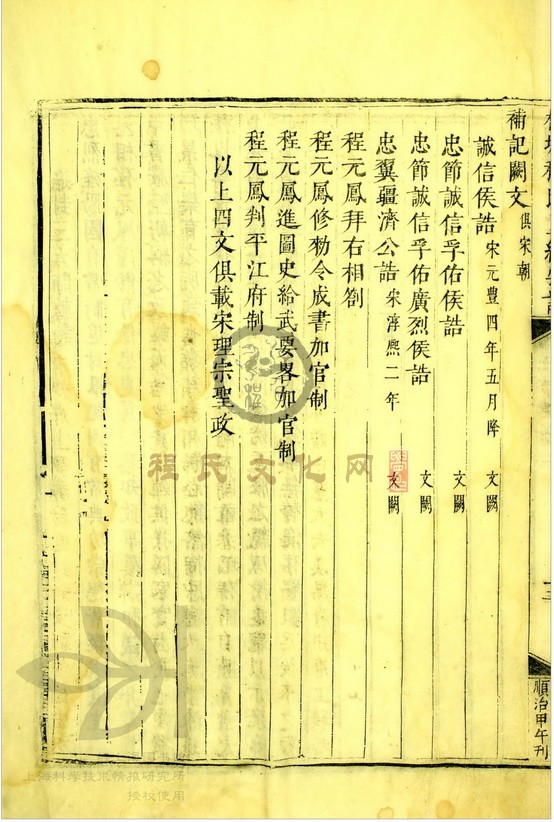 補記闕文 俱宋朝
誠信侯誥 宋元豐四年五月降 文闕
忠節誠信孚佑侯誥 文闕
忠節誠信孚佑廣烈侯誥 文闕
忠翼疆濟公誥 宋淳熈二年 文闕
程元鳳拜右相劄
程元鳳修勑令成書加官制
程元鳳進圖史給武要畧加官制
程元鳳判平江府制
以上四文俱載宋理宗聖政
順治甲午刊
程氏文化网
上海科学技术情报研究所
授权使用